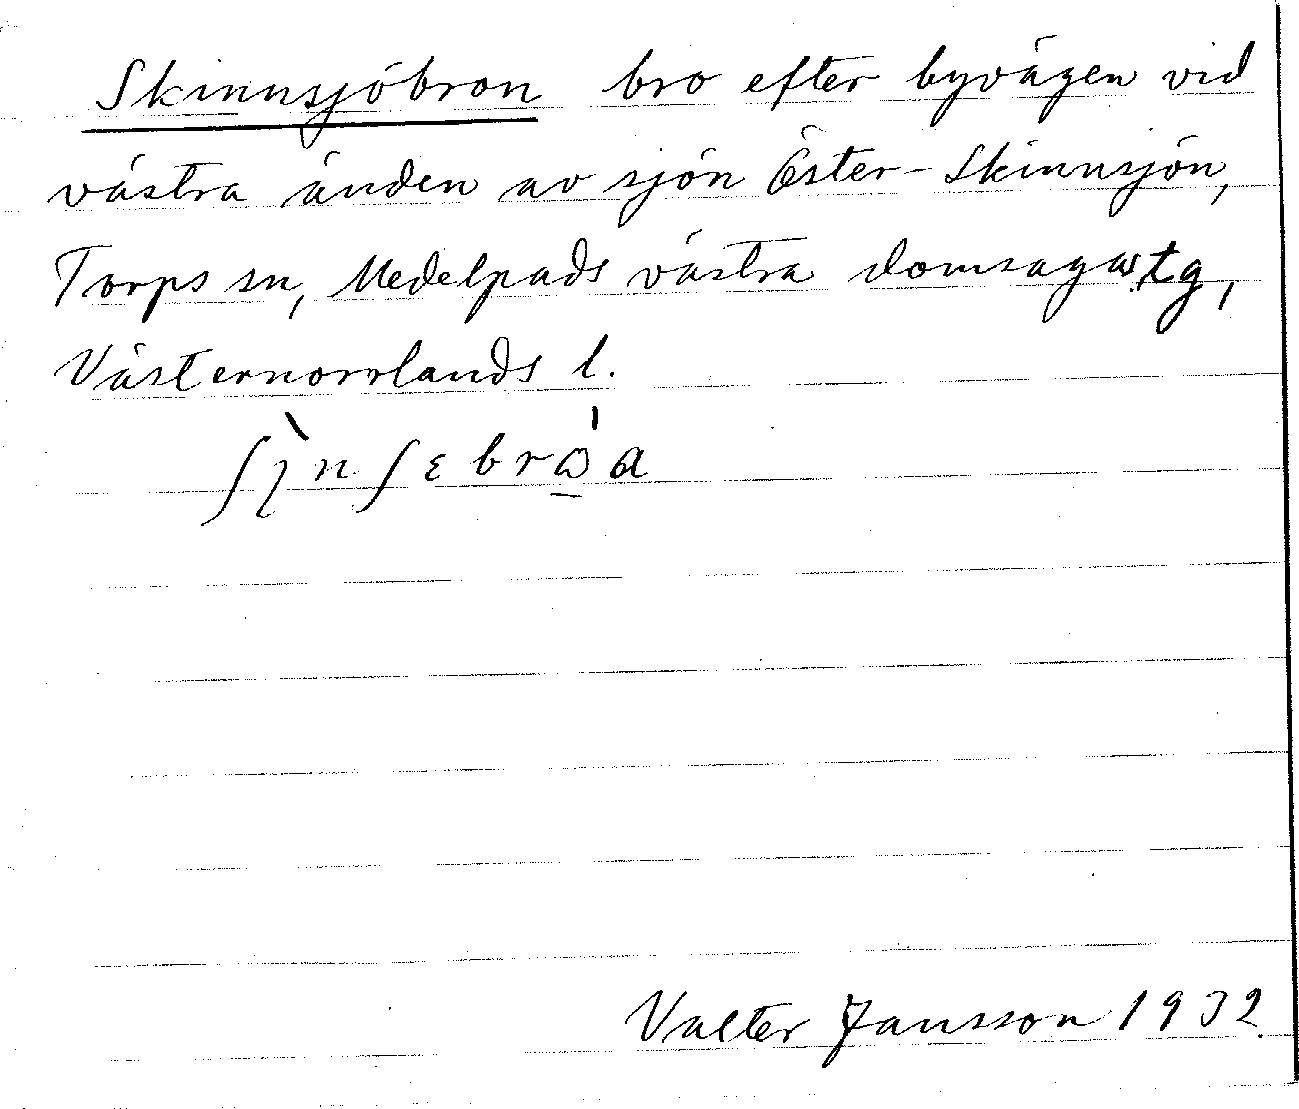 Skinnsjöbron bro efter byvägen vid
västra änden av sjön Öster-Skinnsjön,
Torps sn, Medelpads västra domsagas tg,
Västernorrlands l.
Valter Jansson 1932